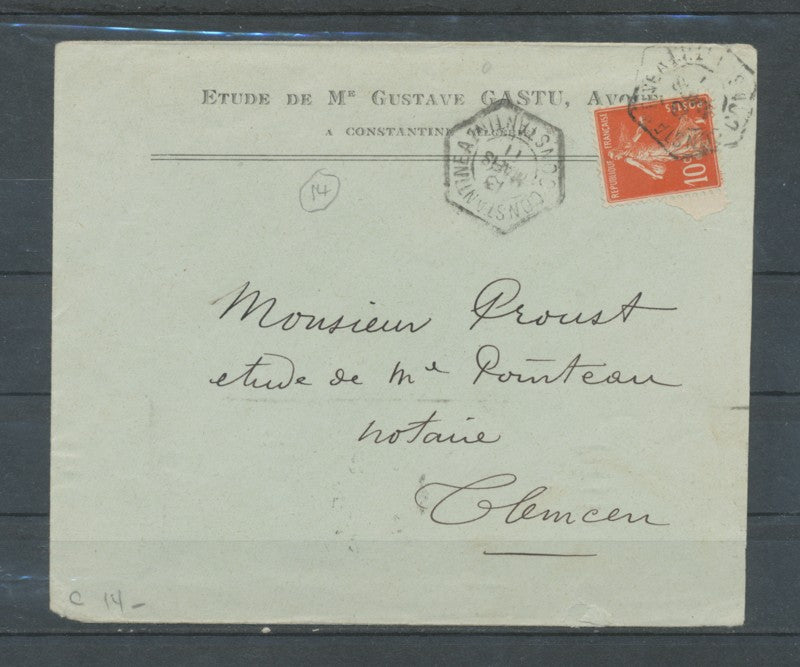 ETUDE DE Mᴱ GUSTAVE GASTU, AVOUÉ
A CONSTANTINE
CONSTANTINE A
13
MARS
11
RÉPUBLIQUE FRANÇAISE
POSTES
10
14
Monsieur Proust
etude de Mᵉ Pointeau
notaire
Tlemcen
C 14 -